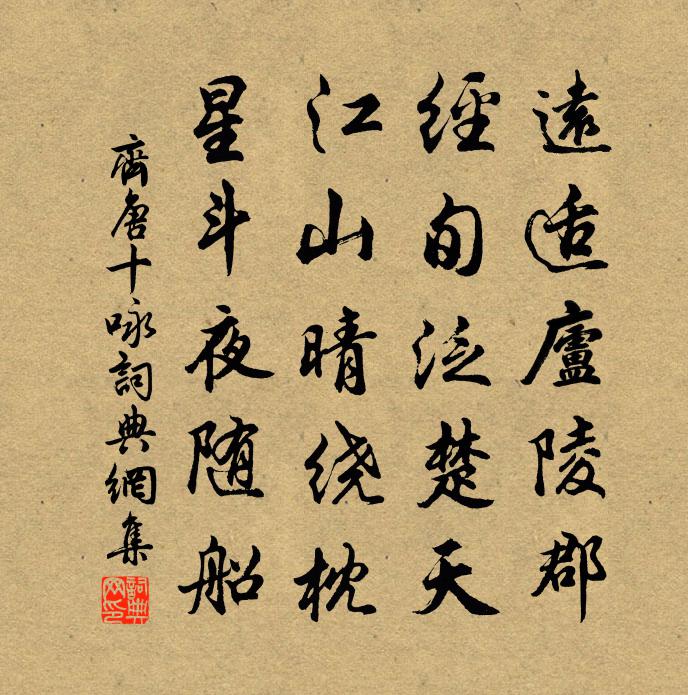 遠适廬陵郡
經旬泛楚天
江山晴绕枕
星斗夜随船
齊唐十咏詞典網集
詞典網印